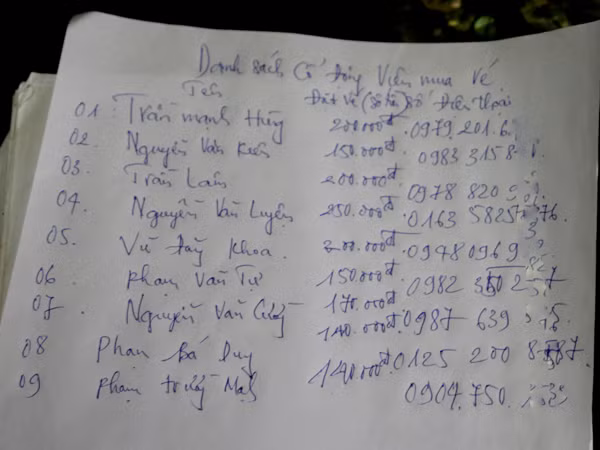 Danh sách Cổ động Viên mua vé
Tên Đặt vé (Số tiền) Số Điện thoại
01. Trần mạnh Hùng 200.000đ 0979.201.6
02. Nguyễn Văn Kiên 150.000đ 0983 3158
03. Trần Lan 200.000đ 0978 820
04. Nguyễn Văn Luyện 250.000đ 0163 5825 76.
05. Vũ Đăng Khoa. 200.000đ 0948 0969
06 Phạm Văn Tư 150.000đ 0982 7
07. Nguyễn Văn Cường 170.000đ 0987 639
140.000đ
08 Phan Bá Duy 0125 200 87.
09 Phạm Mạnh 140.000đ 0904.750.